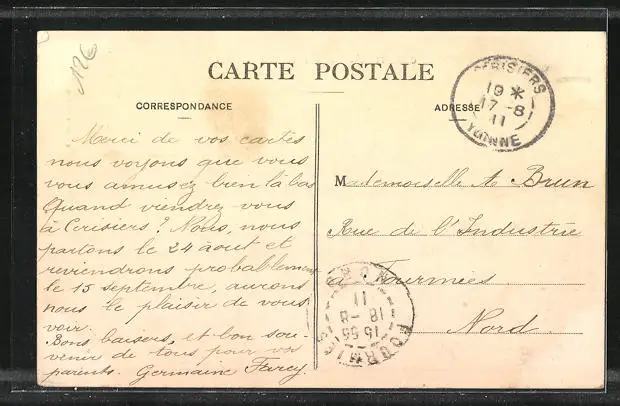 126
CARTE POSTALE
CORRESPONDANCE
ADRESSE
CERISIERS
10 *
17 -8
11
YONNE
Merci de vos cartes
nous voyons que vous
vous amusez bien là bas
Quand viendrez vous
à Cerisiers? Nous, nous
partons le 24 août et
reviendrons probablement
le 15 septembre, aurons
nous le plaisir de vous
voir.
Bons baisers, et bon sou-
venir de tous pour vos
parents. Germaine Farcy.
Mademoiselle A. Brun
Rue de l'Industrie
à Fourmies
Nord.
FOURMIES
15 55
18 -8
11
NORD